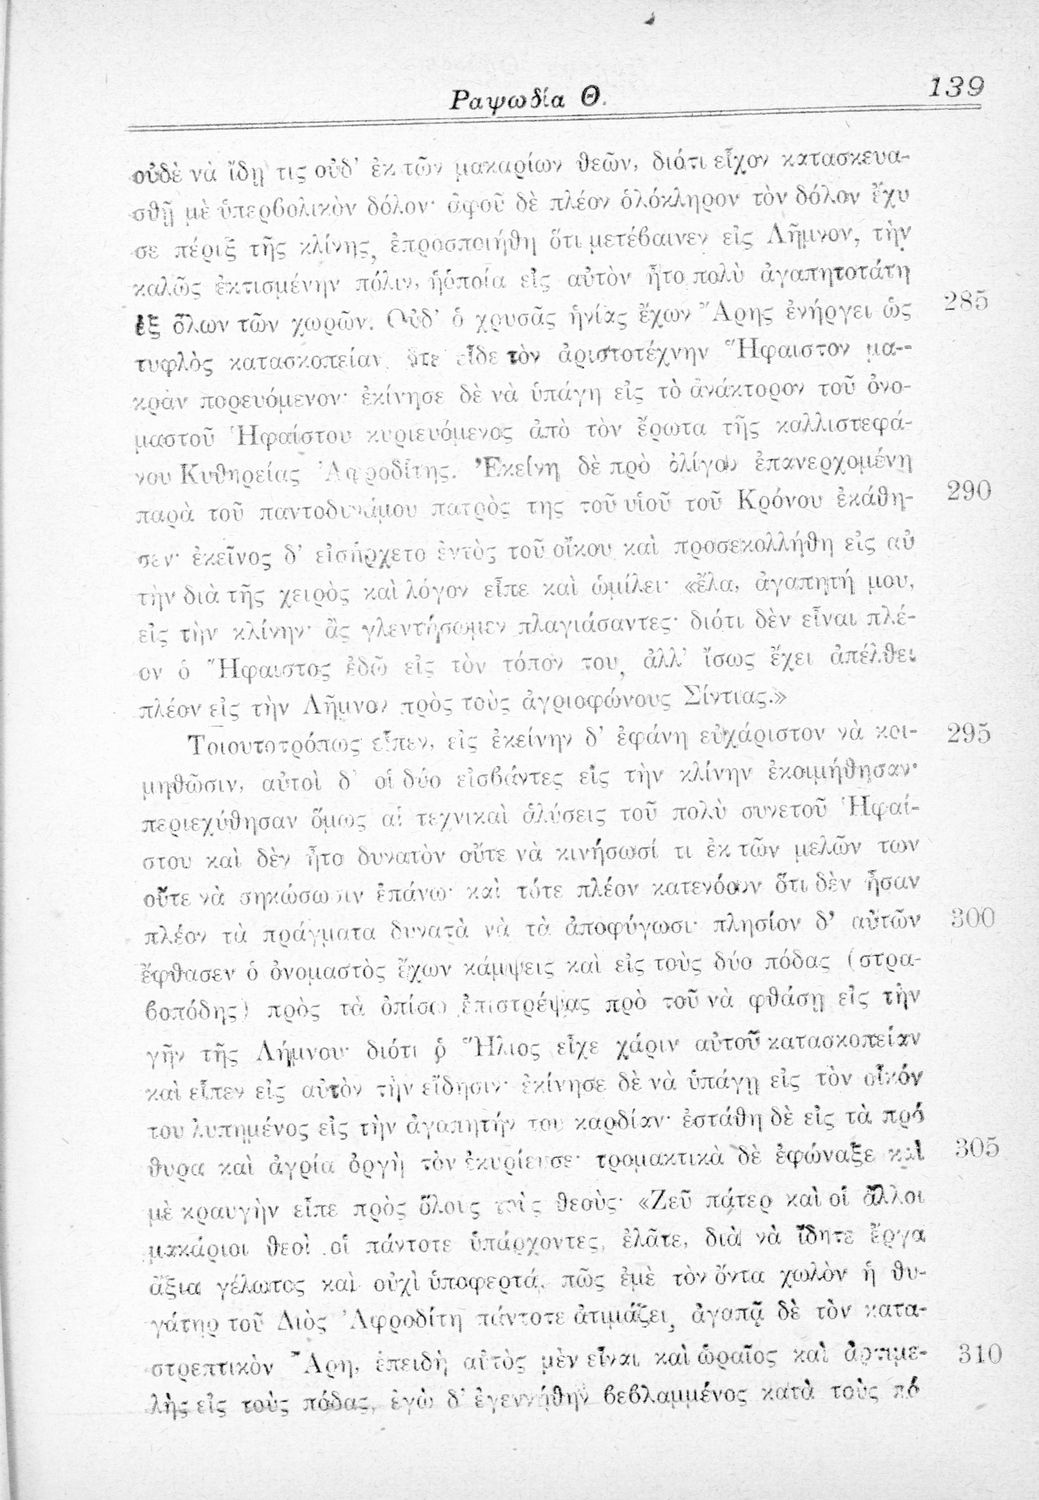 Ραψωδία Θ.
139
οὐδὲ νὰ ἴδῃ τις οὐδ' ἐκ τῶν μακαρίων θεῶν, διότι εἶχον κατασκευα-
σθῇ μὲ ὑπερβολικὸν δόλον· ἀφοῦ δὲ πλέον ὁλόκληρον τὸν δόλον ἔχυ
σε πέριξ τῆς κλίνης, ἐπροσποιήθη ὅτι μετέβαινεν εἰς Λῆμνον, τὴν
καλῶς ἐκτισμένην πόλιν, ἡ ὁποία εἰς αὐτὸν ἦτο πολὺ ἀγαπητοτάτη
ἐξ ὅλων τῶν χωρῶν. Οὐδ' ὁ χρυσᾶς ἡνίας ἔχων Ἄρης ἐνήργει ὡς
285
τυφλὸς κατασκοπείαν, ὅτε εἶδε τὸν ἀριστοτέχνην Ἥφαιστον μα-
κρὰν πορευόμενον· ἐκίνησε δὲ νὰ ὑπάγῃ εἰς τὸ ἀνάκτορον τοῦ ὀνο-
μαστοῦ Ἡφαίστου κυριευόμενος ἀπὸ τὸν ἔρωτα τῆς καλλιστεφά-
νου Κυθηρείας Ἀφροδίτης. Ἐκείνη δὲ πρὸ ὀλίγου ἐπανερχομένη
παρὰ τοῦ παντοδυνάμου πατρὸς της τοῦ υἱοῦ τοῦ Κρόνου ἐκάθη-
290
σεν· ἐκεῖνος δ' εἰσήρχετο ἐντὸς τοῦ οἴκου καὶ προσεκολλήθη εἰς αὐ
τὴν διὰ τῆς χειρὸς καὶ λόγον εἶπε καὶ ὡμίλει· «ἔλα, ἀγαπητή μου,
εἰς τὴν κλίνην· ἂς γλεντήσωμεν πλαγιάσαντες· διότι δὲν εἶναι πλέ-
ον ὁ Ἥφαιστος ἐδῶ εἰς τὸν τόπον του, ἀλλ' ἴσως ἔχει ἀπέλθει
πλέον εἰς τὴν Λῆμνον πρὸς τοὺς ἀγριοφώνους Σίντιας.»
Τοιουτοτρόπως εἶπεν, εἰς ἐκείνην δ' ἐφάνη εὐχάριστον νὰ κοι-
295
μηθῶσιν, αὐτοὶ δ' οἱ δύο εἰσβάντες εἰς τὴν κλίνην ἐκοιμήθησαν·
περιεχύθησαν ὅμως αἱ τεχνικαὶ ἁλύσεις τοῦ πολὺ συνετοῦ Ἡφαί-
στου καὶ δὲν ἦτο δυνατὸν οὔτε νὰ κινήσωσί τι ἐκ τῶν μελῶν των
οὔτε νὰ σηκώσωσιν ἐπάνω· καὶ τότε πλέον κατενόουν ὅτι δὲν ἦσαν
πλέον τὰ πράγματα δυνατὰ νὰ τὰ ἀποφύγωσι· πλησίον δ' αὐτῶν
300
ἔφθασεν ὁ ὀνομαστὸς ἔχων κάμψεις καὶ εἰς τοὺς δύο πόδας (στρα-
βοπόδης) πρὸς τὰ ὀπίσω ἐπιστρέψας πρὸ τοῦ νὰ φθάσῃ εἰς τὴν
γῆν τῆς Λήμνου· διότι ὁ Ἥλιος εἶχε χάριν αὐτοῦ κατασκοπείαν
καὶ εἶπεν εἰς αὐτὸν τὴν εἴδησιν· ἐκίνησε δὲ νὰ ὑπάγῃ εἰς τὸν οἶκόν
του λυπημένος εἰς τὴν ἀγαπητήν του καρδίαν· ἐστάθη δὲ εἰς τὰ πρό
θυρα καὶ ἀγρία ὀργὴ τὸν ἐκυρίευσε· τρομακτικὰ δὲ ἐφώναξε καὶ
305
μὲ κραυγὴν εἶπε πρὸς ὅλους τοὺς θεούς· «Ζεῦ πάτερ καὶ οἱ ἄλλοι
μακάριοι θεοὶ οἱ πάντοτε ὑπάρχοντες, ἐλᾶτε, διὰ νὰ ἴδητε ἔργα
ἄξια γέλωτος καὶ οὐχὶ ὑποφερτά, πῶς ἐμὲ τὸν ὄντα χωλὸν ἡ θυ-
γάτηρ τοῦ Διὸς Ἀφροδίτη πάντοτε ἀτιμάζει, ἀγαπᾷ δὲ τὸν κατα-
στρεπτικὸν Ἄρη, ἐπειδὴ αὐτὸς μὲν εἶναι καὶ ὡραῖος καὶ ἀρτιμε-
310
λὴς εἰς τοὺς πόδας, ἐγὼ δ' ἐγεννήθην βεβλαμμένος κατὰ τοὺς πό